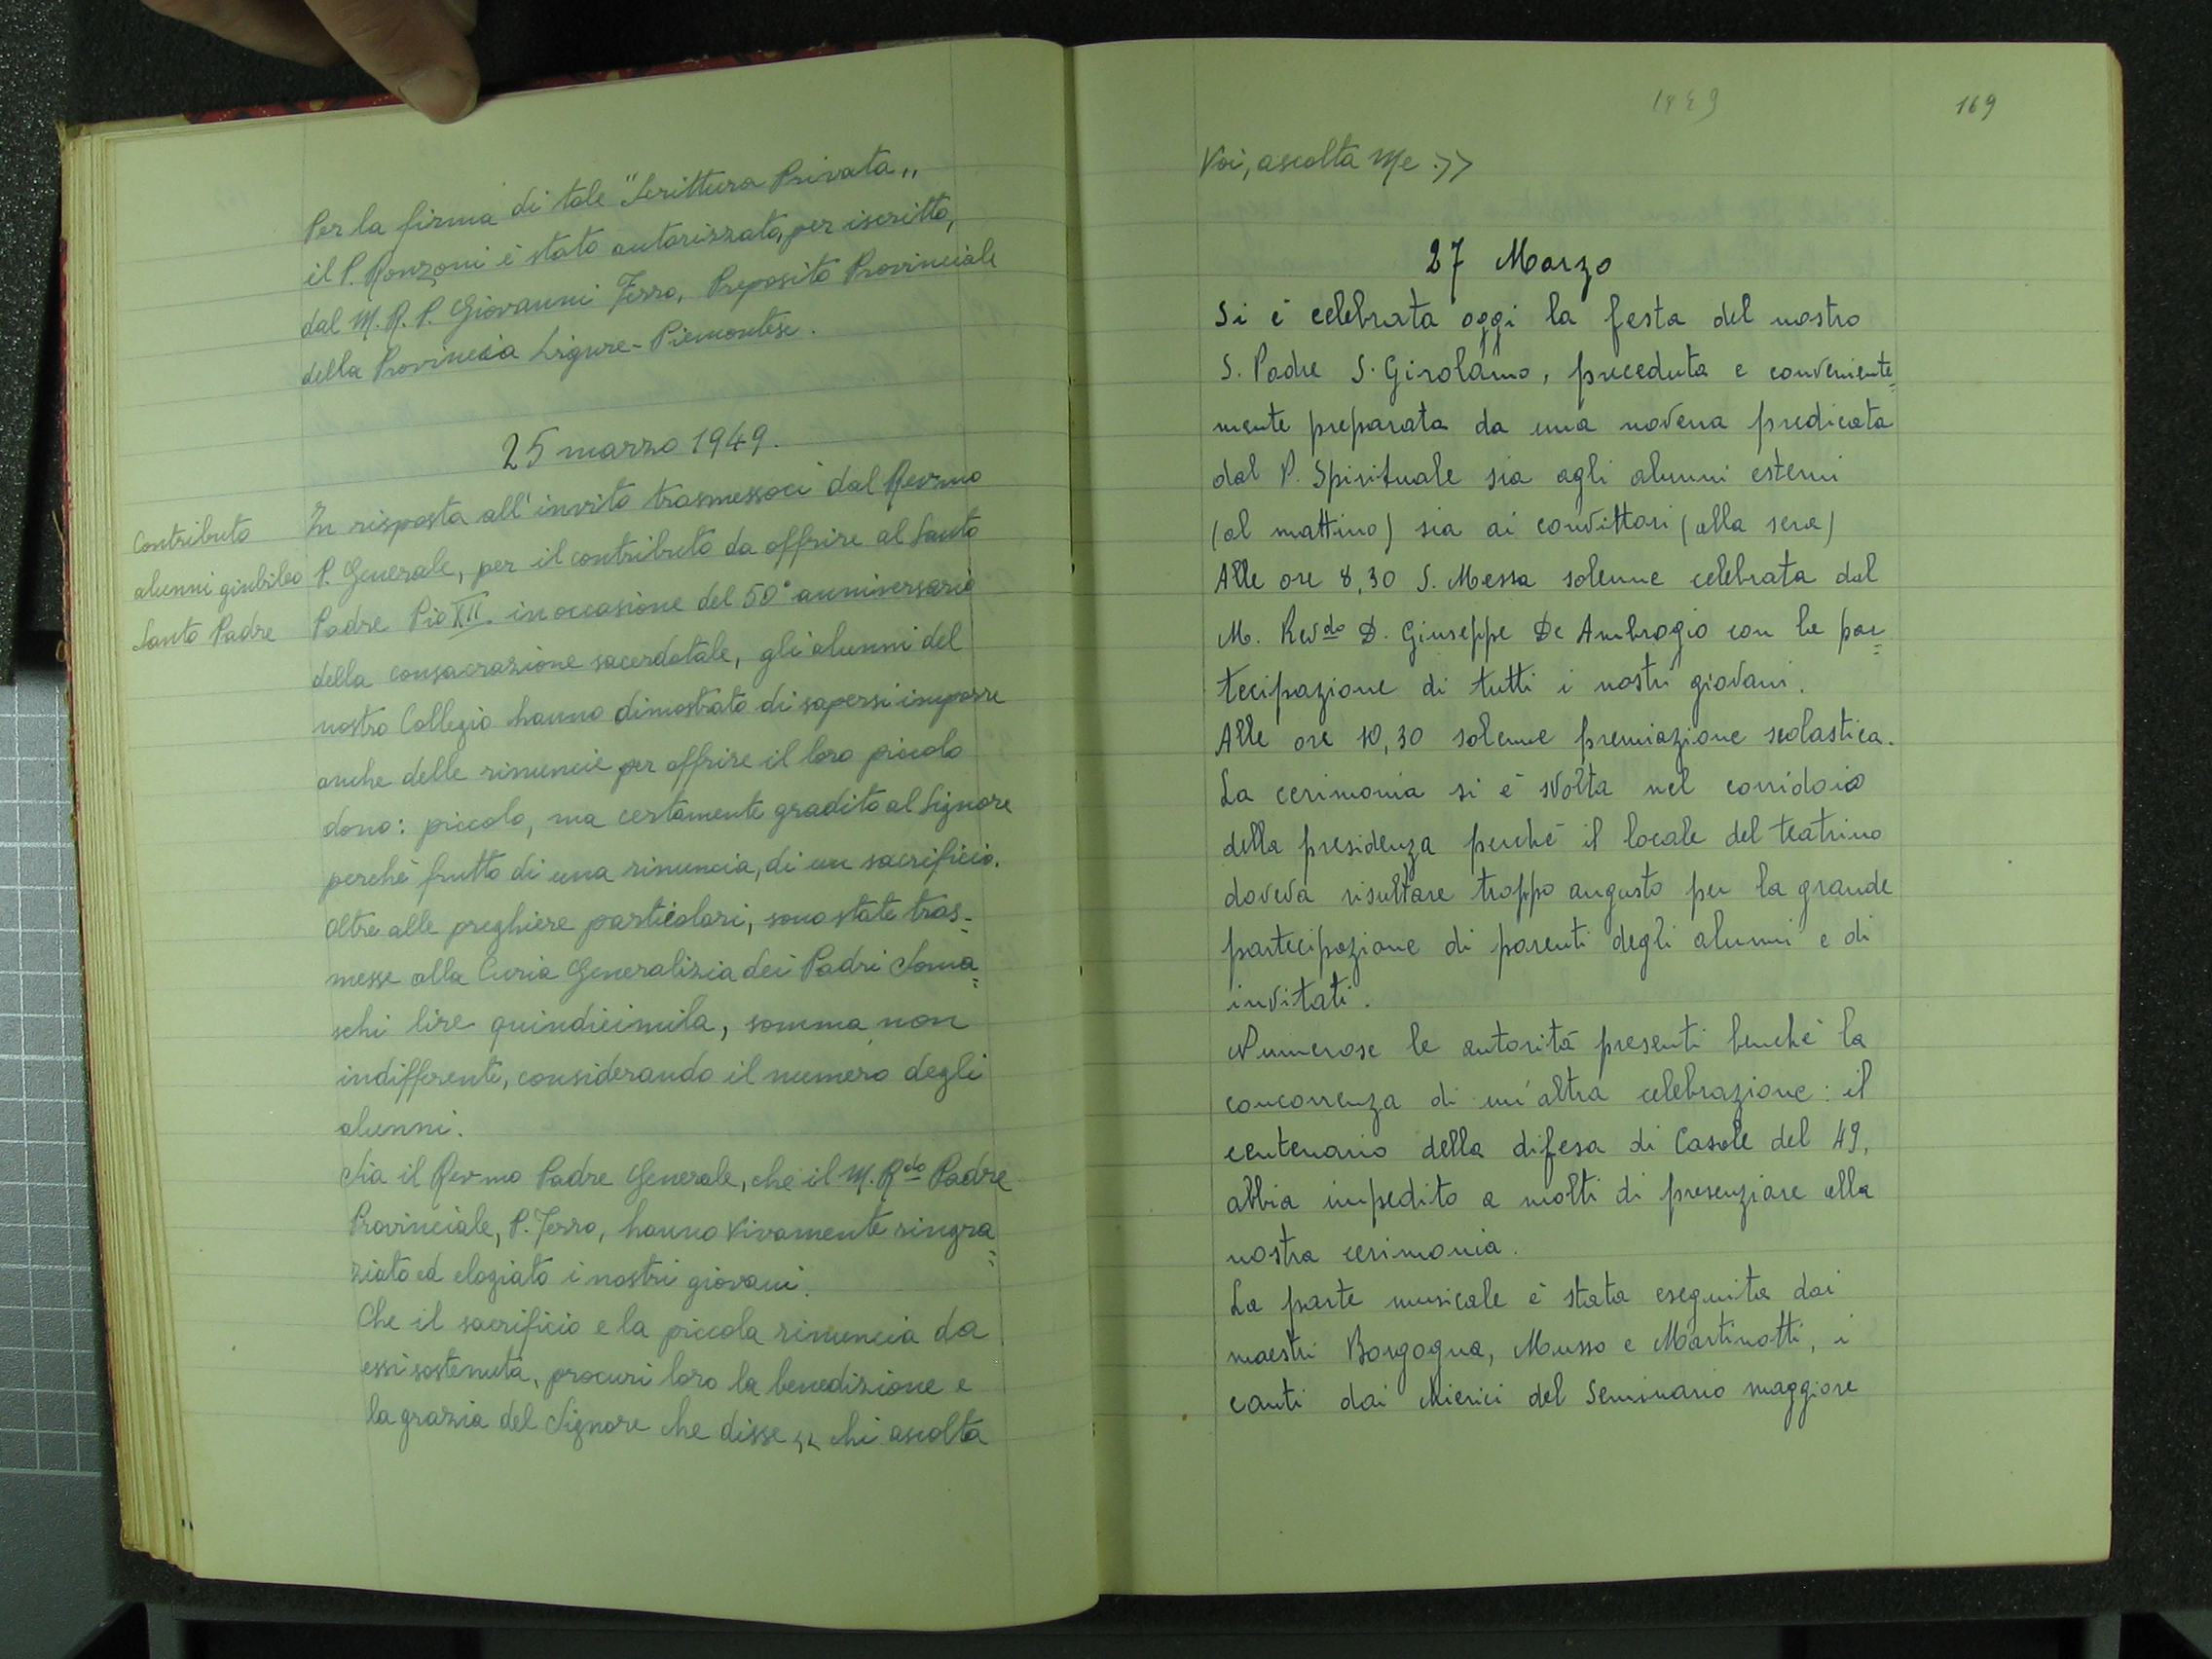 Per la firma di tale "Scrittura Privata„
il P. Ronzoni è stato autorizzato, per iscritto,
dal M. R. P. Giovanni Ferro, Preposito Provinciale
della Provincia Ligure-Piemontese.
25 marzo 1949.
Contributo
alunni giubileo
Santo Padre
In risposta all'invito trasmessoci dal Revmo
P. Generale, per il contributo da offrire al Santo
Padre Pio XII in occasione del 50° anniversario
della consacrazione sacerdotale, gli alunni del
nostro Collegio hanno dimostrato di sapersi imporre
anche delle rinuncie per offrire il loro piccolo
dono: piccolo, ma certamente gradito al Signore
perchè frutto di una rinuncia, di un sacrificio.
Oltre alle preghiere particolari, sono state tras-
messe alla Curia Generalizia dei Padri Soma=
schi lire quindicimila, somma non
indifferente, considerando il numero degli
alunni.
Sia il Revmo Padre Generale, che il M. Rdo Padre
Provinciale, P. Ferro, hanno vivamente ringra=
ziato ed elogiato i nostri giovani.
Che il sacrificio e la piccola rinuncia da
essi sostenuta, procuri loro la benedizione e
la grazia del Signore che disse << chi ascolta
1949
169
Voi, ascolta Me.>>
27 Marzo
Si è celebrata oggi la festa del nostro
S. Padre S. Girolamo, preceduta e conveniente=
mente preparata da una novena predicata
dal P. Spirituale sia agli alunni esterni
(al mattino) sia ai convittori (alla sera)
Alle ore 8,30 S. Messa solenne celebrata dal
M. Revdo D. Giuseppe De Ambrogio con la par=
tecipazione di tutti i nostri giovani.
Alle ore 10,30 solenne premiazione scolastica.
La cerimonia si è svolta nel corridoio
della presidenza perchè il locale del teatrino
doveva risultare troppo angusto per la grande
partecipazione di parenti degli alunni e di
invitati.
Numerose le autorità presenti benchè la
concorrenza di un'altra celebrazione: il
centenario della difesa di Casale del 49,
abbia impedito a molti di presenziare alla
nostra cerimonia.
La parte musicale è stata eseguita dai
maestri Borgogna, Musso e Martinotti, i
canti dai chierici del Seminario maggiore